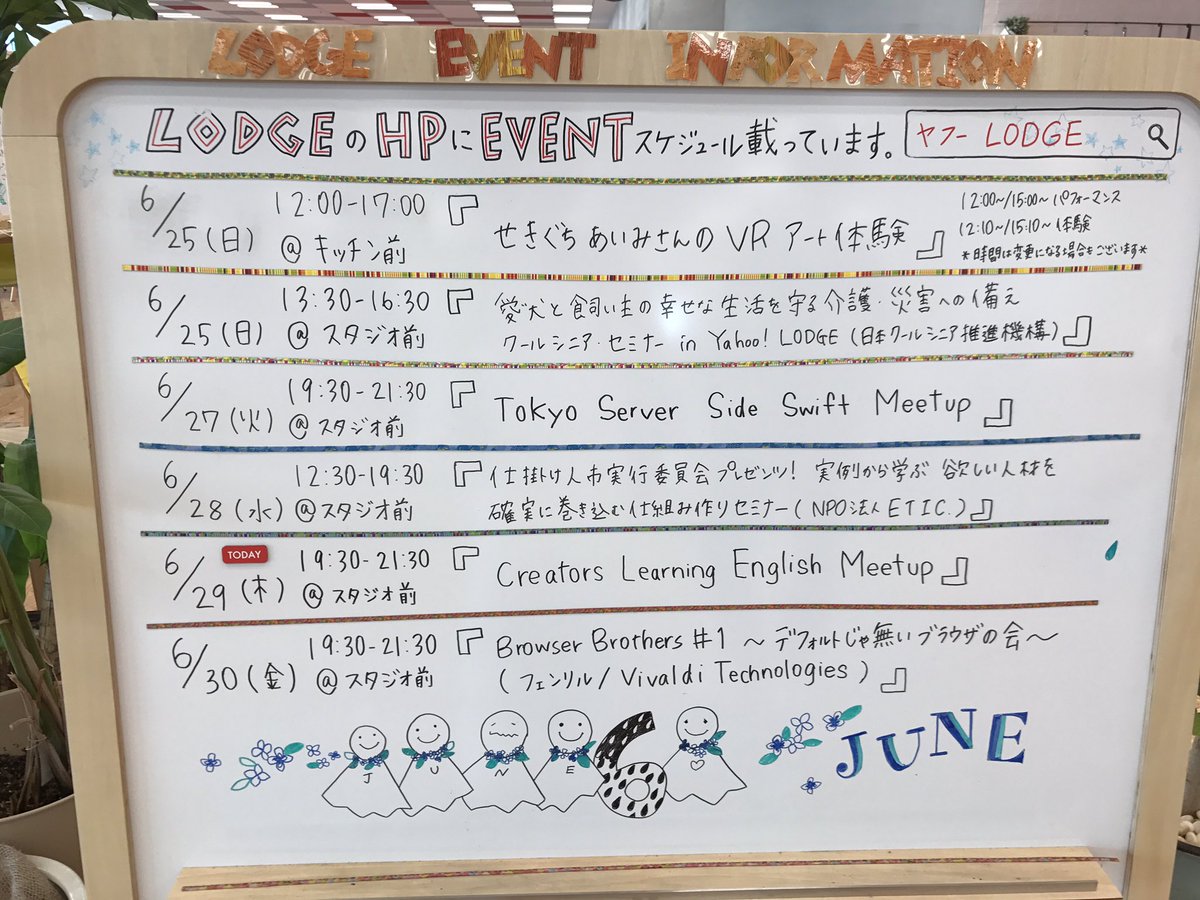 LODGE EVENT INFORMATION
LODGEのHPにEVENTスケジュール載っています。 ヤフー LODGE
6/25(日) 12:00-17:00 @キッチン前 『せきぐちあいみさんのVRアート体験』
12:00~/15:00~ パフォーマンス
12:10~/15:10~ 体験
*時間は変更になる場合もございます*
6/25(日) 13:30-16:30 @スタジオ前 『愛犬と飼い主の幸せな生活を守る介護・災害への備え
クールシニア・セミナー in Yahoo! LODGE (日本クールシニア推進機構)』
6/27(火) 19:30-21:30 @スタジオ前 『Tokyo Server Side Swift Meetup』
6/28(水) 12:30-19:30 @スタジオ前 『仕掛け人市実行委員会プレゼンツ! 実例から学ぶ 欲しい人材を
確実に巻き込む仕組み作りセミナー(NPO法人ETIC.)』
TODAY
6/29(木) 19:30-21:30 @スタジオ前 『Creators Learning English Meetup』
6/30(金) 19:30-21:30 @スタジオ前 『Browser Brothers #1 ～デフォルトじゃ無いブラウザの会～
(フェンリル/Vivaldi Technologies)』
J U N E 6
JUNE